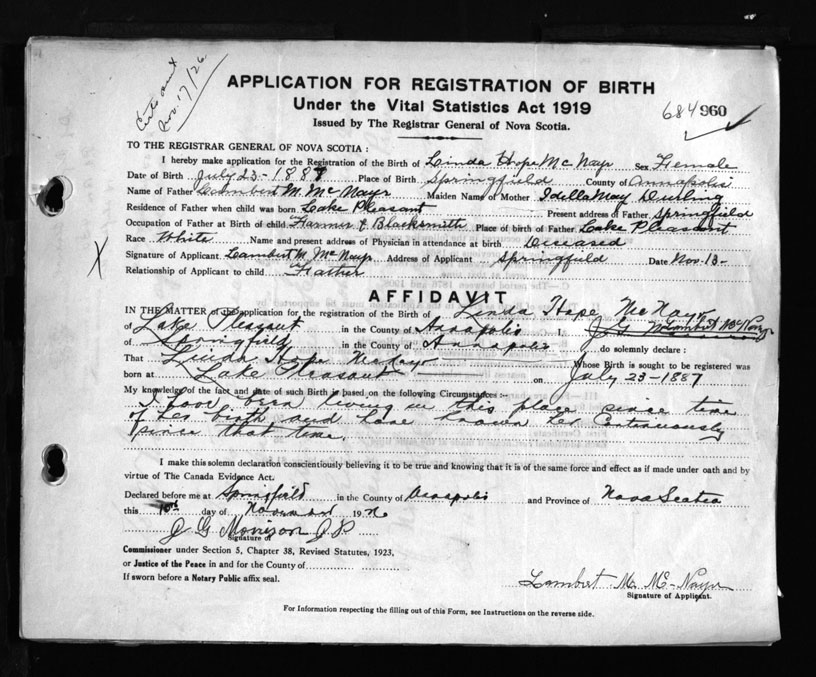 Nov. 17/26
APPLICATION FOR REGISTRATION OF BIRTH
Under the Vital Statistics Act 1919
Issued by The Registrar General of Nova Scotia.
684 960
TO THE REGISTRAR GENERAL OF NOVA SCOTIA :
I hereby make application for the Registration of the Birth of Linda Hope Mc Nayr Sex Female
Date of Birth July 23 - 1887 Place of Birth Springfield County of Annapolis
Name of Father Lambert M. Mc Nayr Maiden Name of Mother Idella May Durling
Residence of Father when child was born Lake Pleasant Present address of Father Springfield
Occupation of Father at Birth of child Farmer & Blacksmith Place of birth of Father Lake Pleasant
Race White Name and present address of Physician in attendance at birth Diseased
Signature of Applicant Lambert M. Mc Nayr Address of Applicant Springfield Date Nov. 13 -
X
Relationship of Applicant to child Father
AFFIDAVIT
IN THE MATTER of the application for the registration of the Birth of Linda Hope Mc Nayr
of Lake Pleasant in the County of Annapolis I, J G Lambert Mc Nayr
of Springfield in the County of Annapolis do solemnly declare :
That Linda Hope McNayr Whose Birth is sought to be registered was
born at Lake Pleasant on July 23 - 1887
My knowledge of the fact and date of such Birth is based on the following Circumstances :-
I have been living in this place since time
of her birth and have known her Continuously
since that time.
I make this solemn declaration conscientiously believing it to be true and knowing that it is of the same force and effect as if made under oath and by
virtue of The Canada Evidence Act.
Declared before me at Springfield in the County of Annapolis and Province of Nova Scotia
this day of November 19 26
J G Morrison J P
Signature of
Commissioner under Section 5, Chapter 38, Revised Statutes, 1923,
or Justice of the Peace in and for the County of
If sworn before a Notary Public affix seal.
Lambert M. Mc-Nayr
Signature of Applicant.
For Information respecting the filling out of this Form, see Instructions on the reverse side.